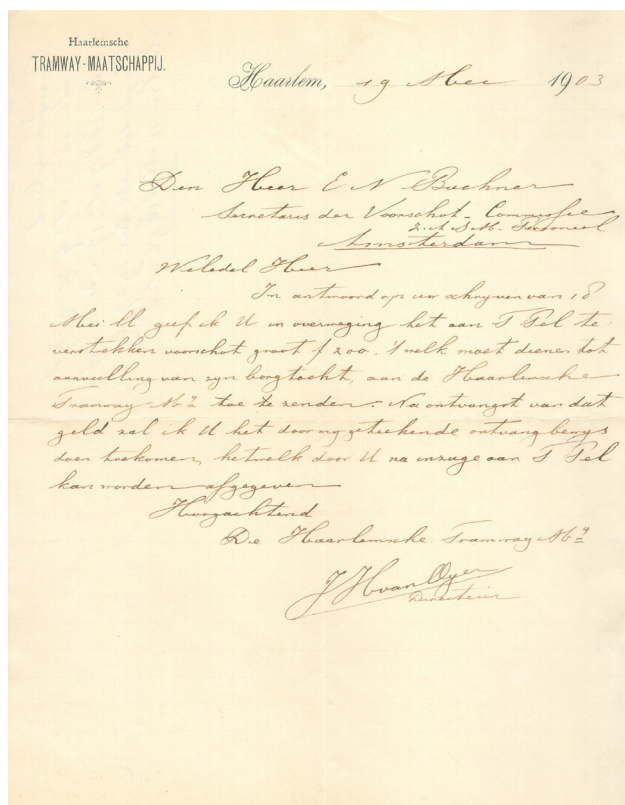 Haarlemsche
TRAMWAY-MAATSCHAPPIJ.
Haarlem, 19 Mei 1903
Den Heer E N Buchner
Secretaris der Voorschot-Commissie
Z. A S. M. Personeel
Amsterdam
Weledel Heer
In antwoord op uw schryven van 18
Mei ll geef ik U in overweging het aan T Pel te
verstrekken voorschot groot f 200. 't welk moet dienen tot
aanvulling van zyn borgtocht, aan de Haarlemsche
Tramway My toe te zenden. Na ontvangst van dat
geld zal ik U het door my geteekende ontvangbewys
doen toekomen, hetwelk door U na inzage aan T Pel
kan worden afgegeven
Hoogachtend
De Haarlemsche Tramway My
J H van
Directeur